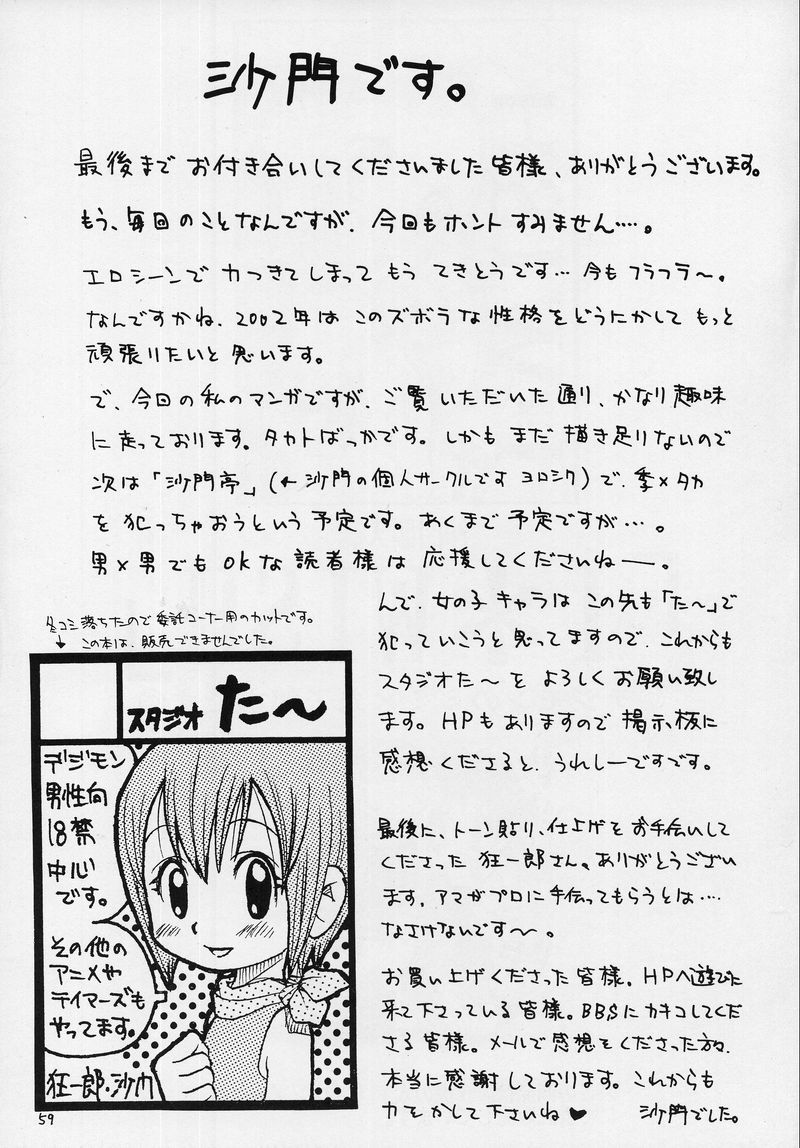 沙門です。
最後まで お付き合いしてくださいました皆様、ありがとうございます。
もう、毎回のことなんですが、今回もホント すみません…‥。
エロシーンで 力つきてしまって もう てきとうです… 今も フラフラ〜。
なんですかね、2002年は このズボラな性格をどうにかして もっと
頑張りたいと思います。
で、今回の私のマンガですが、ご覧 いただいた通り、かなり趣味
に走っております。タカトばっかです。しかも まだ 描き足りないので
次は「沙門亭」(←沙門の個人サークルです ヨロシク)で、季×タカ
を 犯っちゃおうという予定です。あくまで予定ですが…。
男×男でも OKな読者様は 応援してくださいねー。
んで、女の子キャラは この先も「た〜」で
犯っていこうと思ってますので、これからも
スタジオた〜を よろしくお願い致し
ます。HPもありますので 掲示板に
感想くださると、うれしーですです。
最後に、トーン貼り、仕上げをお手伝いして
くださった 狂一郎さん。ありがとうござい
ます、アマがプロに手伝ってもらうとは…‥
なさけないです〜。
お買い上げくださった皆様。HPへ遊びに
来て下さっている皆様。BBSにカキコしてくだ
さる皆様。メールで感想をくださった方々、
本当に感謝しております。これからも
力をかして下さいね♥ 沙門でした。
冬コミ落ちたので 委託コーナー用のカットです。
↓ この本は、販売できませんでした。
スタジオ た〜
デジモン
男性向
18禁
中心
です。
その他の
アニメや
テイマーズも
やってます。
狂一郎・沙門
59